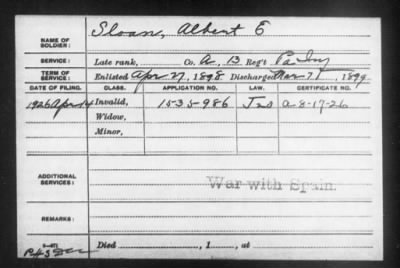 NAME OF SOLDIER: Sloan, Albert E
SERVICE: Late rank, Co. A, 13 Reg't Pa Inf
TERM OF SERVICE: Enlisted Apr 27, 1898 Discharged Mar 1899
DATE OF FILING. CLASS. APPLICATION NO. LAW. CERTIFICATE NO.
1926 Apr 14 Invalid, 1535-986 a-8-17-26
Widow,
Minor,
ADDITIONAL SERVICES: War with Spain.
REMARKS:
Died , 1 , at